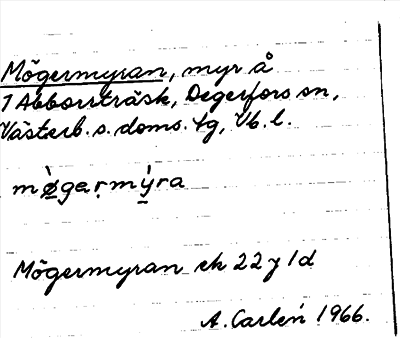 Mögermyran, myr å
1 Abborrträsk, Degerfors sn,
Västerb. s. doms. tg, Vb. l.
mø̀gaṛmýra
Mögermyran ek 22 y 1d
A. Carlén 1966.